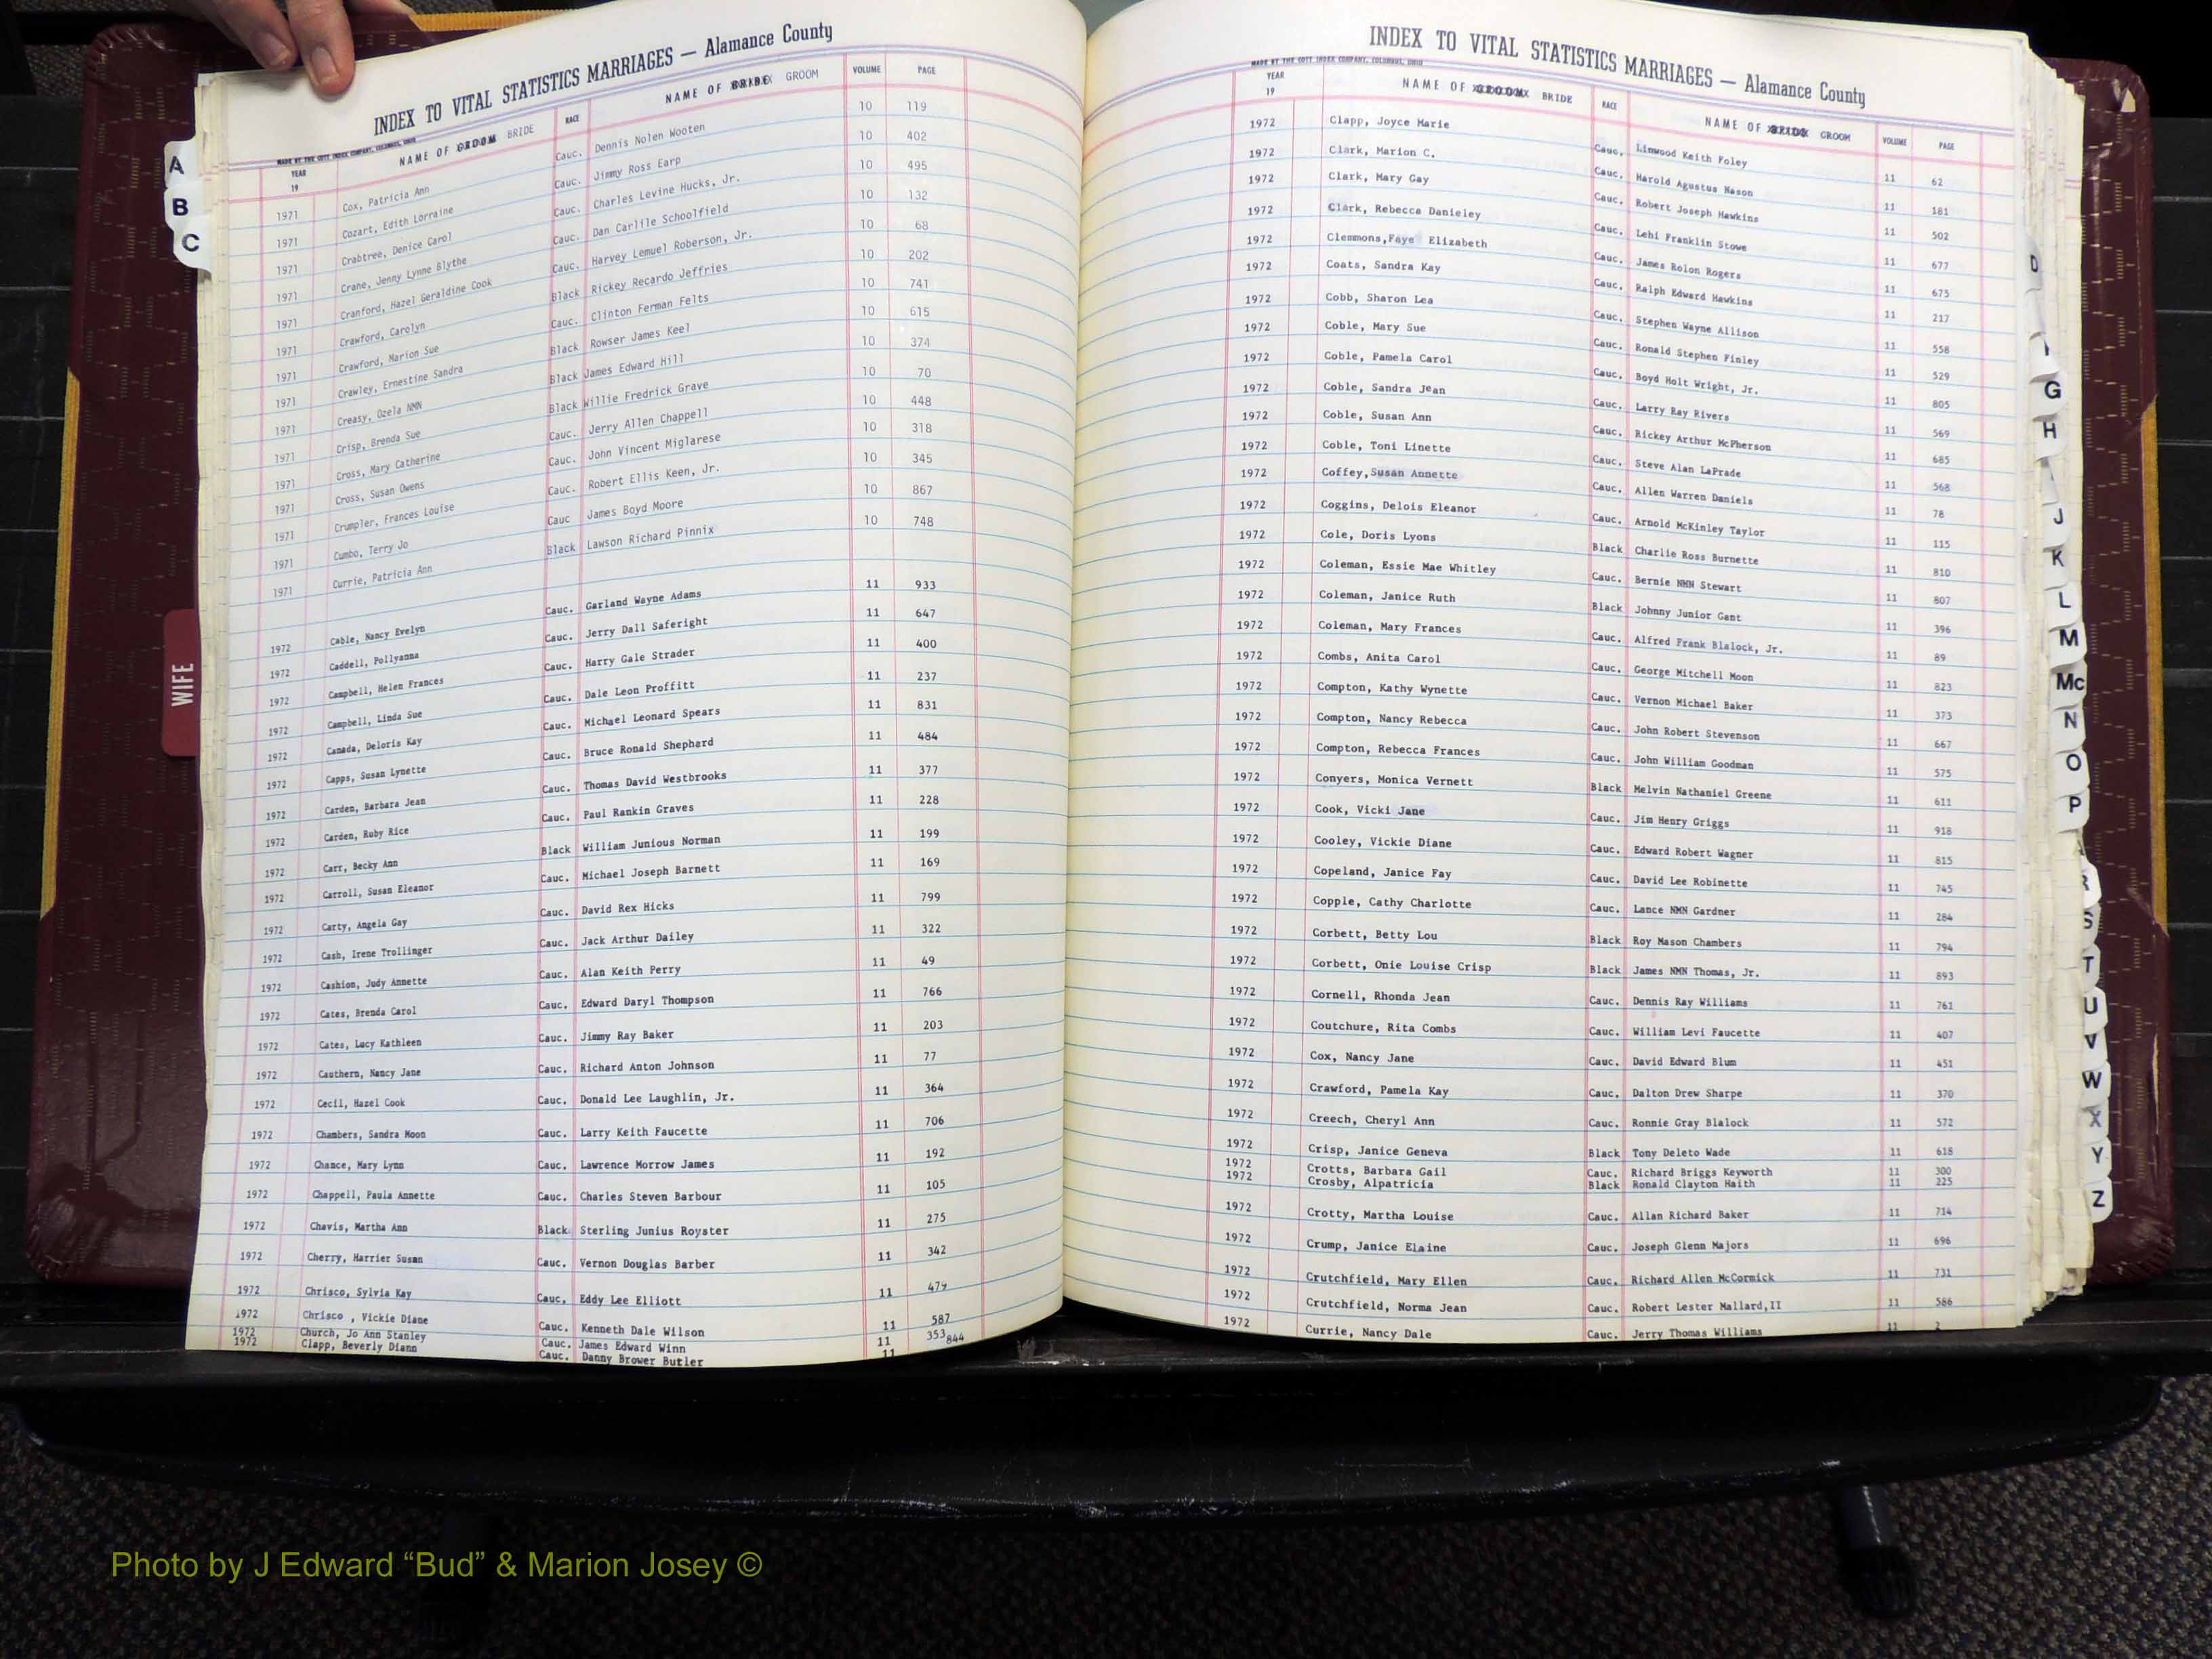 INDEX TO VITAL STATISTICS MARRIAGES — Alamance County
MADE BY THE COTT INDEX COMPANY, COLUMBUS, OHIO
YEAR 19 NAME OF GROOM BRIDE RACE NAME OF BRIDE GROOM VOLUME PAGE
1971 Cox, Patricia Ann Cauc. Dennis Nolen Wooten 10 119
1971 Cozart, Edith Lorraine Cauc. Jimmy Ross Earp 10 402
1971 Crabtree, Denice Carol Cauc. Charles Levine Hucks, Jr. 10 495
1971 Crane, Jenny Lynne Blythe Cauc. Dan Carlile Schoolfield 10 132
1971 Cranford, Hazel Geraldine Cook Cauc. Harvey Lemuel Roberson, Jr. 10 68
1971 Crawford, Carolyn Black Rickey Recardo Jeffries 10 202
1971 Crawford, Marion Sue Cauc. Clinton Ferman Felts 10 741
1971 Crawley, Ernestine Sandra Black Rowser James Keel 10 615
1971 Creasy, Ozela NMN Black James Edward Hill 10 374
1971 Crisp, Brenda Sue Black Willie Fredrick Grave 10 70
1971 Cross, Mary Catherine Cauc. Jerry Allen Chappell 10 448
1971 Cross, Susan Owens Cauc. John Vincent Miglarese 10 318
1971 Crumpler, Frances Louise Cauc. Robert Ellis Keen, Jr. 10 345
1971 Cumbo, Terry Jo Cauc James Boyd Moore 10 867
1971 Currie, Patricia Ann Black Lawson Richard Pinnix 10 748
1972 Cable, Nancy Evelyn Cauc. Garland Wayne Adams 11 933
1972 Caddell, Pollyanna Cauc. Jerry Dall Saferight 11 647
1972 Campbell, Helen Frances Cauc. Harry Gale Strader 11 400
1972 Campbell, Linda Sue Cauc. Dale Leon Proffitt 11 237
1972 Canada, Deloris Kay Cauc. Michael Leonard Spears 11 831
1972 Capps, Susan Lynette Cauc. Bruce Ronald Shephard 11 484
1972 Carden, Barbara Jean Cauc. Thomas David Westbrooks 11 377
1972 Carden, Ruby Rice Cauc. Paul Rankin Graves 11 228
1972 Carr, Becky Ann Black William Junious Norman 11 199
1972 Carroll, Susan Eleanor Cauc. Michael Joseph Barnett 11 169
1972 Carty, Angela Gay Cauc. David Rex Hicks 11 799
1972 Cash, Irene Trollinger Cauc. Jack Arthur Dailey 11 322
1972 Cashion, Judy Annette Cauc. Alan Keith Perry 11 49
1972 Cates, Brenda Carol Cauc. Edward Daryl Thompson 11 766
1972 Cates, Lucy Kathleen Cauc. Jimmy Ray Baker 11 203
1972 Cauthern, Nancy Jane Cauc. Richard Anton Johnson 11 77
1972 Cecil, Hazel Cook Cauc. Donald Lee Laughlin, Jr. 11 364
1972 Chambers, Sandra Moon Cauc. Larry Keith Faucette 11 706
1972 Chance, Mary Lynn Cauc. Lawrence Morrow James 11 192
1972 Chappell, Paula Annette Cauc. Charles Steven Barbour 11 105
1972 Chavis, Martha Ann Black Sterling Junius Royster 11 275
1972 Cherry, Harrier Susan Cauc. Vernon Douglas Barber 11 342
1972 Chrisco, Sylvia Kay Cauc. Eddy Lee Elliott 11 479
1972 Chrisco , Vickie Diane Cauc. Kenneth Dale Wilson 11 587
1972 Church, Jo Ann Stanley Cauc. James Edward Winn 11 353
1972 Clapp, Beverly Diann Cauc. Danny Brower Butler 11 844
INDEX TO VITAL STATISTICS MARRIAGES — Alamance County
MADE BY THE COTT INDEX COMPANY, COLUMBUS, OHIO
YEAR 19 NAME OF GROOM BRIDE RACE NAME OF BRIDE GROOM VOLUME PAGE
1972 Clapp, Joyce Marie Cauc. Linwood Keith Foley 11 62
1972 Clark, Marion C. Cauc. Harold Agustus Mason 11 181
1972 Clark, Mary Gay Cauc. Robert Joseph Hawkins 11 502
1972 Clark, Rebecca Danieley Cauc. Lehi Franklin Stowe 11 677
1972 Clemmons,Faye Elizabeth Cauc. James Rolon Rogers 11 675
1972 Coats, Sandra Kay Cauc. Ralph Edward Hawkins 11 217
1972 Cobb, Sharon Lea Cauc. Stephen Wayne Allison 11 558
1972 Coble, Mary Sue Cauc. Ronald Stephen Finley 11 529
1972 Coble, Pamela Carol Cauc. Boyd Holt Wright, Jr. 11 805
1972 Coble, Sandra Jean Cauc. Larry Ray Rivers 11 569
1972 Coble, Susan Ann Cauc. Rickey Arthur McPherson 11 685
1972 Coble, Toni Linette Cauc. Steve Alan LaPrade 11 568
1972 Coffey,Susan Annette Cauc. Allen Warren Daniels 11 78
1972 Coggins, Delois Eleanor Cauc. Arnold McKinley Taylor 11 115
1972 Cole, Doris Lyons Black Charlie Ross Burnette 11 810
1972 Coleman, Essie Mae Whitley Cauc. Bernie NMN Stewart 11 807
1972 Coleman, Janice Ruth Black Johnny Junior Gant 11 396
1972 Coleman, Mary Frances Cauc. Alfred Frank Blalock, Jr. 11 89
1972 Combs, Anita Carol Cauc. George Mitchell Moon 11 823
1972 Compton, Kathy Wynette Cauc. Vernon Michael Baker 11 373
1972 Compton, Nancy Rebecca Cauc. John Robert Stevenson 11 667
1972 Compton, Rebecca Frances Cauc. John William Goodman 11 575
1972 Conyers, Monica Vernett Black Melvin Nathaniel Greene 11 611
1972 Cook, Vicki Jane Cauc. Jim Henry Griggs 11 918
1972 Cooley, Vickie Diane Cauc. Edward Robert Wagner 11 815
1972 Copeland, Janice Fay Cauc. David Lee Robinette 11 745
1972 Copple, Cathy Charlotte Cauc. Lance NMN Gardner 11 284
1972 Corbett, Betty Lou Black Roy Mason Chambers 11 794
1972 Corbett, Onie Louise Crisp Black James NMN Thomas, Jr. 11 893
1972 Cornell, Rhonda Jean Cauc. Dennis Ray Williams 11 761
1972 Coutchure, Rita Combs Cauc. William Levi Faucette 11 407
1972 Cox, Nancy Jane Cauc. David Edward Blum 11 451
1972 Crawford, Pamela Kay Cauc. Dalton Drew Sharpe 11 370
1972 Creech, Cheryl Ann Cauc. Ronnie Gray Blalock 11 572
1972 Crisp, Janice Geneva Black Tony Deleto Wade 11 618
1972 Crotts, Barbara Gail Cauc. Richard Briggs Keyworth 11 300
1972 Crosby, Alpatricia Black Ronald Clayton Haith 11 225
1972 Crotty, Martha Louise Cauc. Allan Richard Baker 11 714
1972 Crump, Janice Elaine Cauc. Joseph Glenn Majors 11 696
1972 Crutchfield, Mary Ellen Cauc. Richard Allen McCormick 11 731
1972 Crutchfield, Norma Jean Cauc. Robert Lester Mallard,II 11 586
1972 Currie, Nancy Dale Cauc. Jerry Thomas Williams 11 2
A
B
C
WIFE
D
G
H
J
K
L
M
Mc
N
O
P
R
S
T
U
V
W
X
Y
Z
Photo by J Edward “Bud” & Marion Josey ©